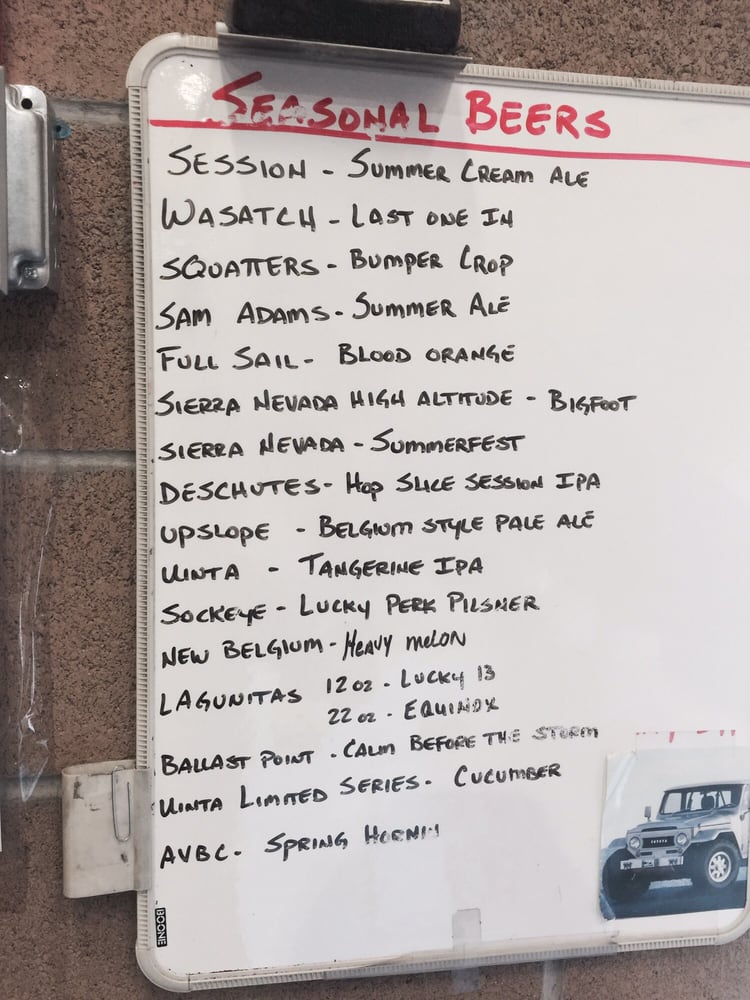 SEASONAL BEERS
SESSION - SUMMER CREAM ALE
WASATCH - LAST ONE IN
SQUATTERS - BUMPER CROP
SAM ADAMS - SUMMER ALE
FULL SAIL - BLOOD ORANGE
SIERRA NEVADA HIGH ALTITUDE - BIGFOOT
SIERRA NEVADA - SUMMERFEST
DESCHUTES - HOP SLICE SESSION IPA
UPSLOPE - BELGIUM STYLE PALE ALE
UINTA - TANGERINE IPA
SOCKEYE - LUCKY PERK PILSNER
NEW BELGIUM - HEAVY MELON
LAGUNITAS 12 OZ - LUCKY 13
22 OZ - EQUINOX
BALLAST POINT - CALM BEFORE THE STORM
UINTA LIMITED SERIES - CUCUMBER
AVBC - SPRING HORNIN
TOYOTA
BOONE